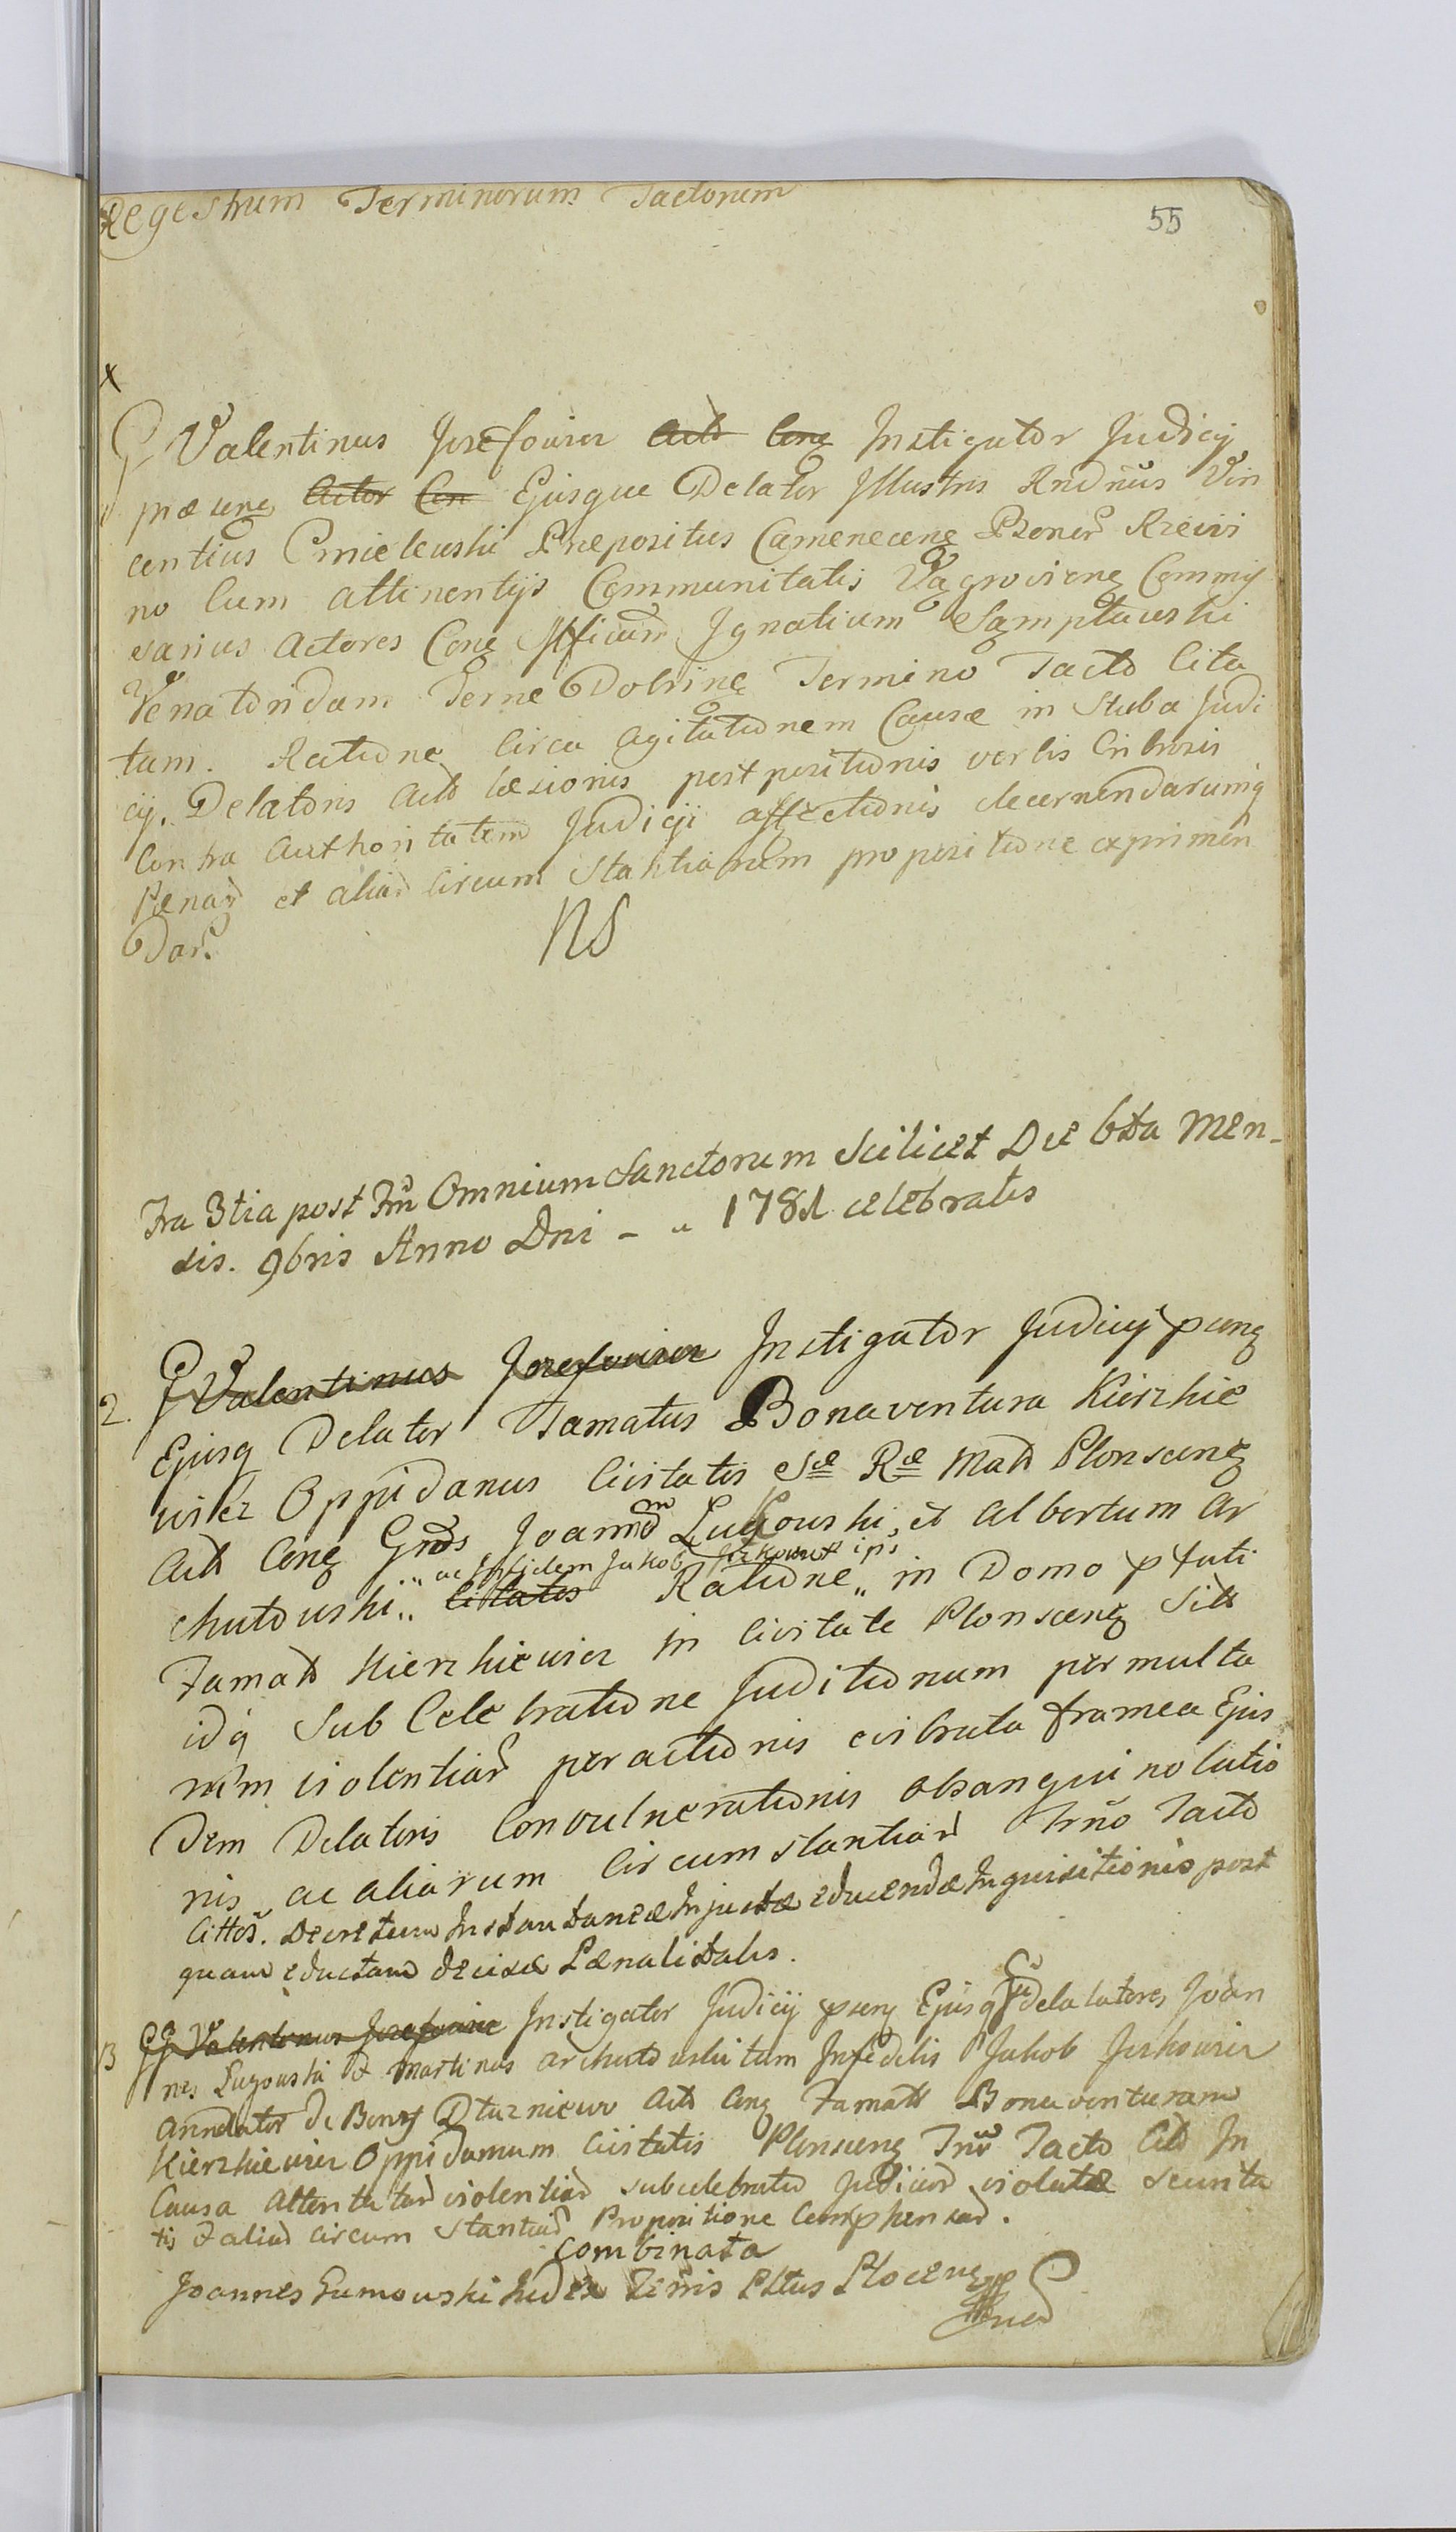 Regestrum Terminorum Tactorum
55
x
G Valentinus Jozefowicz Acto Conę Instigator Judicij
præsenę Actor Con Ejusque Delator Illustris Rndnus Vin
centius Cmielewski Præpositus Camenecenę Bonor Rzewi
no Cum attinentijs Communitatis Vągrovienę Commis
sarius Actores Conę Mficum Ignatium Sąmpławski
Venatoridam Terræ Dobrinę Termino Tacto Cita
tum. Ratione Circa agitationem Causæ in Stuba Judi
cij. Delatoris Acto læsionis postpositionis verbis Cribrosis
Contra Authoritatem Judicij affectionis decernendarumq
Pænar et aliar Circum Stantiarum propositione exprimen
Dar.
NS
Fra 3tia post Fm Omnium Sanctorum Scilicet Die 6ta Men-
sis. 9bris Anno Dni - " 1781 celebratis
2. G Valentinus Jozefowicz Instigator Judicij psenę
Ejusq Delator Famatus Bonaventura Kierzkie
wicz Oppidanus Civitatis Sæ Ræ Matt Plonscenę
Actt Conę Gnds Joannem Lugowski, et Albertum Ar
" ac Infidem Jakob Jzkowicz ips
chutowski " Citatos Ratione " in Domo pfati
Famatt Kierzkiewicz in Civitate Plonscenę Sitt
idq Sub Celebratione Juditionum per multa
rum violentiar peractionis evibrata framea Ejus
Dem Delatoris Convulnerationis obsanguinolatio
nis ac aliarum Circumstantiar Trno Tacto
Cittos. Decretum Instantaneæ Injuctæ educendæ Inquisitionis post
quam eductam decisæ Pænalitatis.
3 GG Valentinus Jozefowicz Instigator Judicij psenę Ejusq GG delatores Joan
nes Lugowski et Martinus Archutowski tum Infidelis Jakob Jzkowicz
Arindator De Bonis Dłuzniewo Actt Conę Famatt Bonaventuram
Kierzkiewicz Oppidanum Civitatis Plonscenę Trno Tacto Citt In
Causa Attentatar violentiar subcelebratio Judicior violatæ Securita
tis et aliar circum Stantiar Propositione Comphensar.
Combinata
Joannes Gumowski Judex Terris Pltus Plocenę